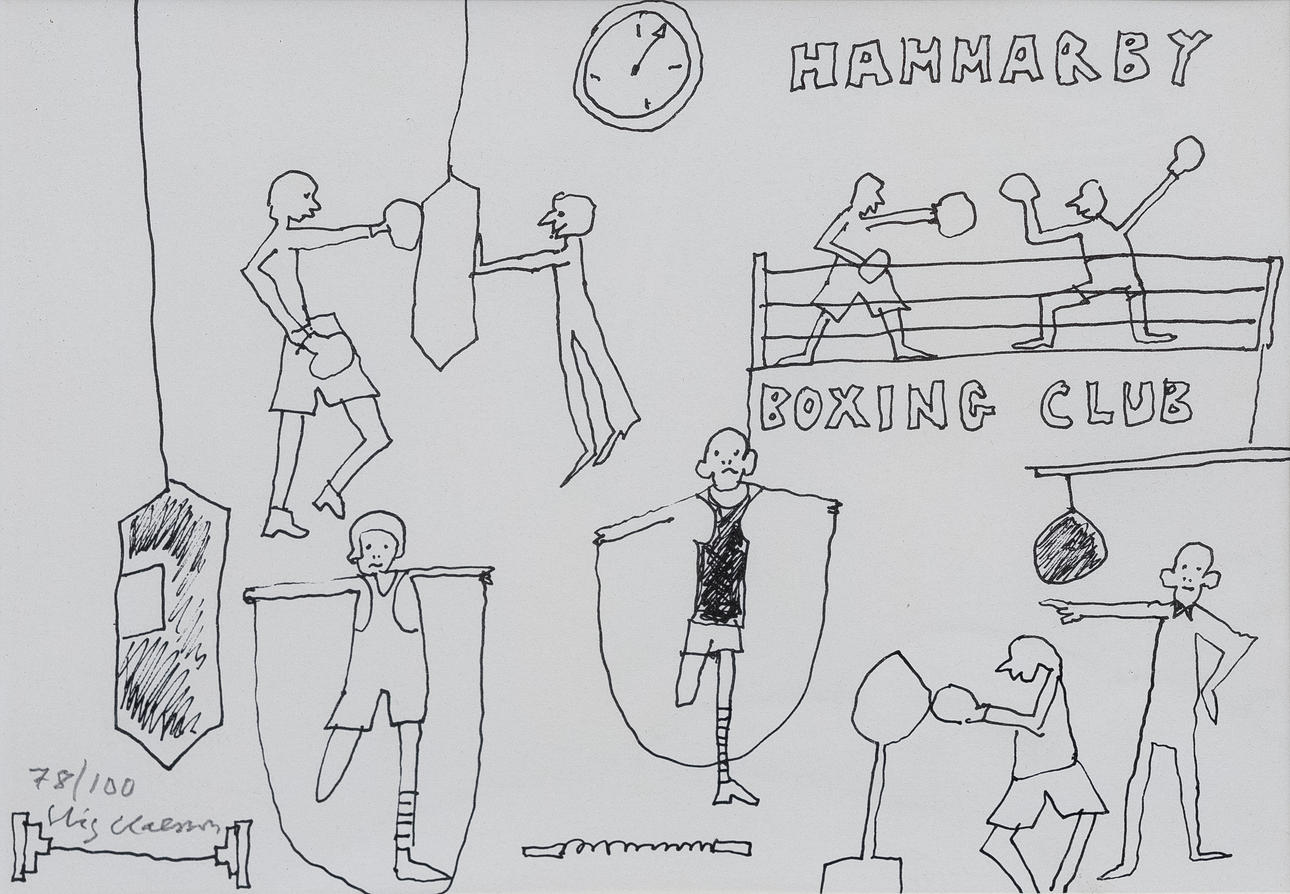 HAMMARBY
BOXING CLUB
78/100
Stig Claesson